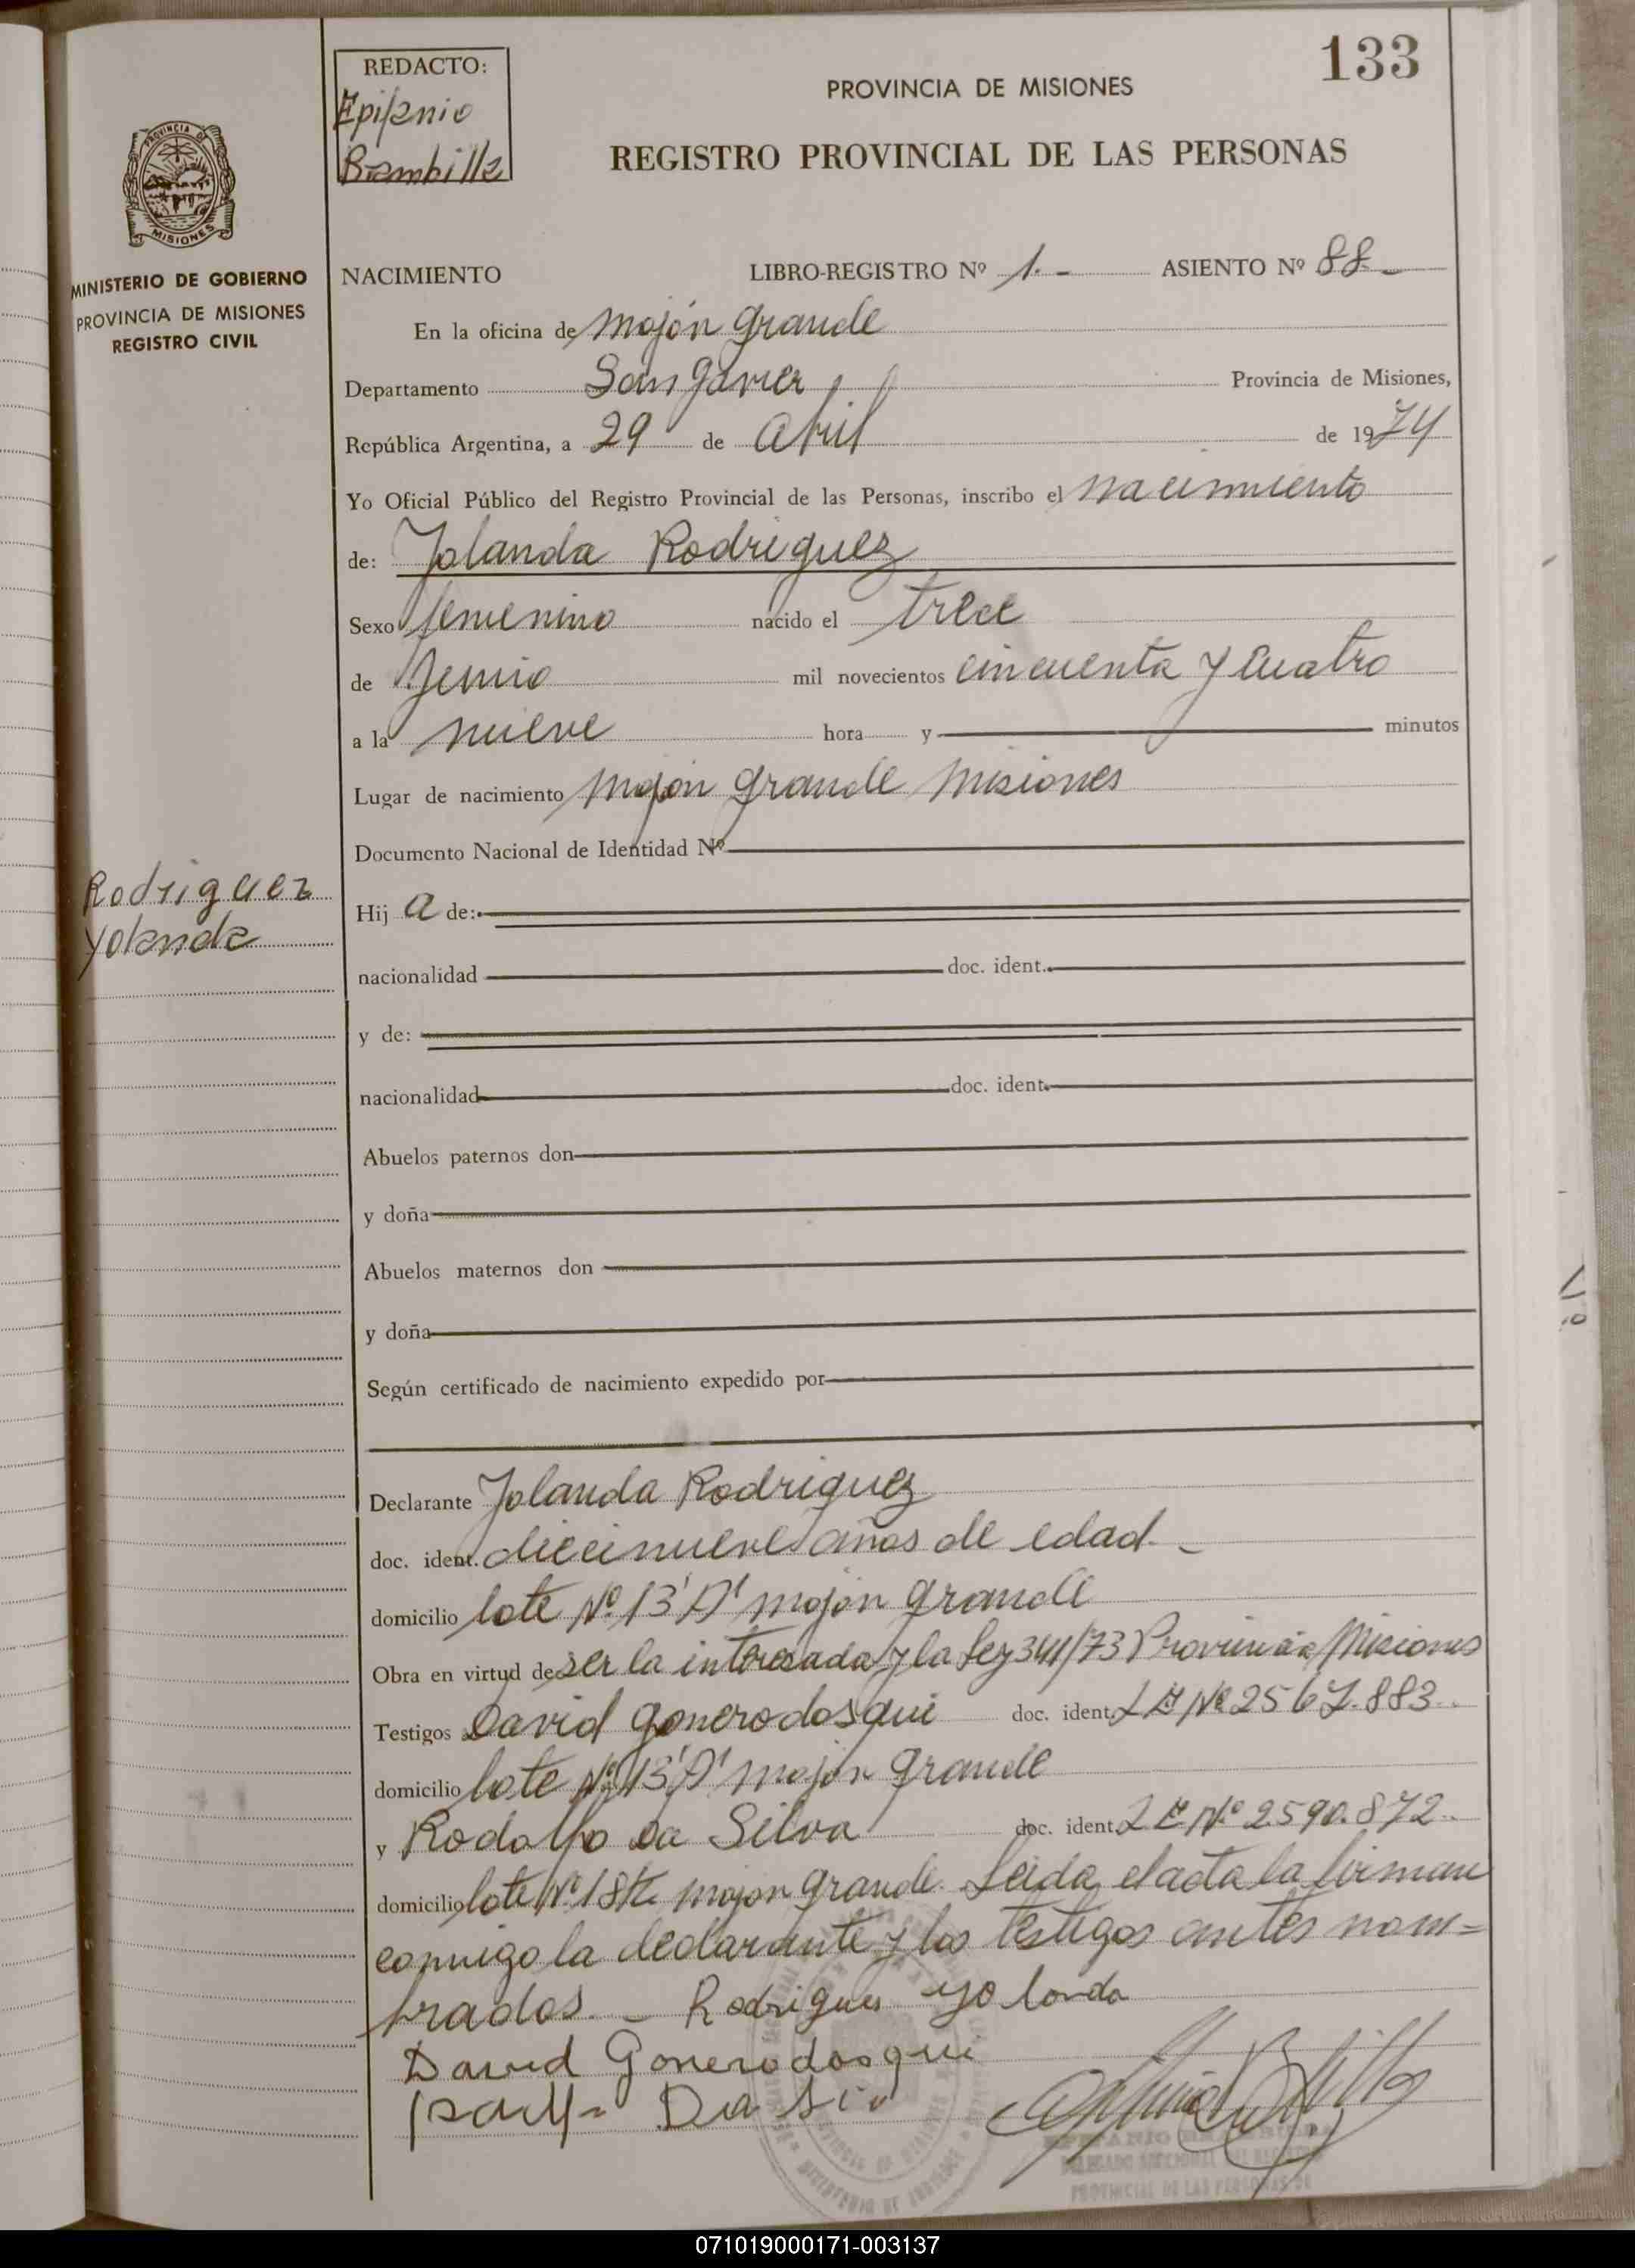 133
REDACTO:
Epifanio
Brambilla
PROVINCIA DE MISIONES
REGISTRO PROVINCIAL DE LAS PERSONAS
PROVINCIA DE
MISIONES
MINISTERIO DE GOBIERNO
PROVINCIA DE MISIONES
REGISTRO CIVIL
NACIMIENTO LIBRO-REGISTRO Nº 1.- ASIENTO Nº 88-
En la oficina de mojón grande
Departamento San Javier Provincia de Misiones,
República Argentina, a 29 de abril de 1974
Yo Oficial Público del Registro Provincial de las Personas, inscribo el nacimiento
de: Yolanda Rodriguez
Sexo femenino nacido el trece
de Junio mil novecientos cincuenta y cuatro
a la nueve hora y minutos
Lugar de nacimiento mojón grande Misiones
Documento Nacional de Identidad Nº
Rodriguez
Yolanda
Hij a de:
nacionalidad doc. ident.
y de:
nacionalidad doc. ident.
Abuelos paternos don
y doña
Abuelos maternos don
y doña
Según certificado de nacimiento expedido por
Declarante Yolanda Rodriguez
doc. ident. diecinueve años de edad.-
domicilio lote Nº 13'A' mojón grande
Obra en virtud de ser la interesada y la Ley 341/73 Provincia Misiones
Testigos David Gonerodosqui doc. ident. L E Nº 2567.883.
domicilio lote Nº 13'A' mojón grande
y Rodolfo Da Silva doc. ident. L E Nº 2590.872.
domicilio lote Nº 18 mojon grande. Leida el acta la firman
conmigo la declarante y los testigos antes nom=
brados.- Rodrigues Yolanda
David Gonerodosqui
Da Si
PROVINCIAL DE LAS PERSONAS
071019000171-003137